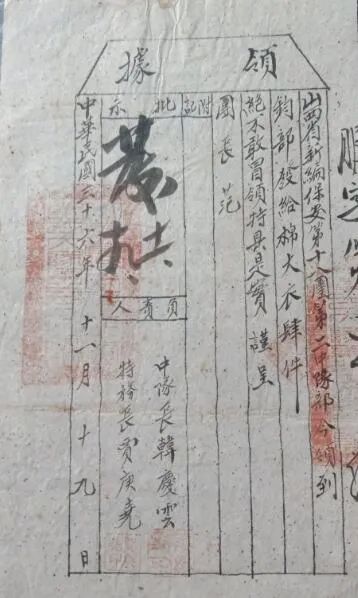 領據
山西省新編保安第十八團第二中隊部今領到
鈞部發給棉大衣肆件
絕不敢冒領特具是實 謹呈
團長 范
附記
批示
發
十六、
九、
負責人
中隊長韓慶雲
特務長賈庚堯
中華民國三十六年 十一月 十九 日